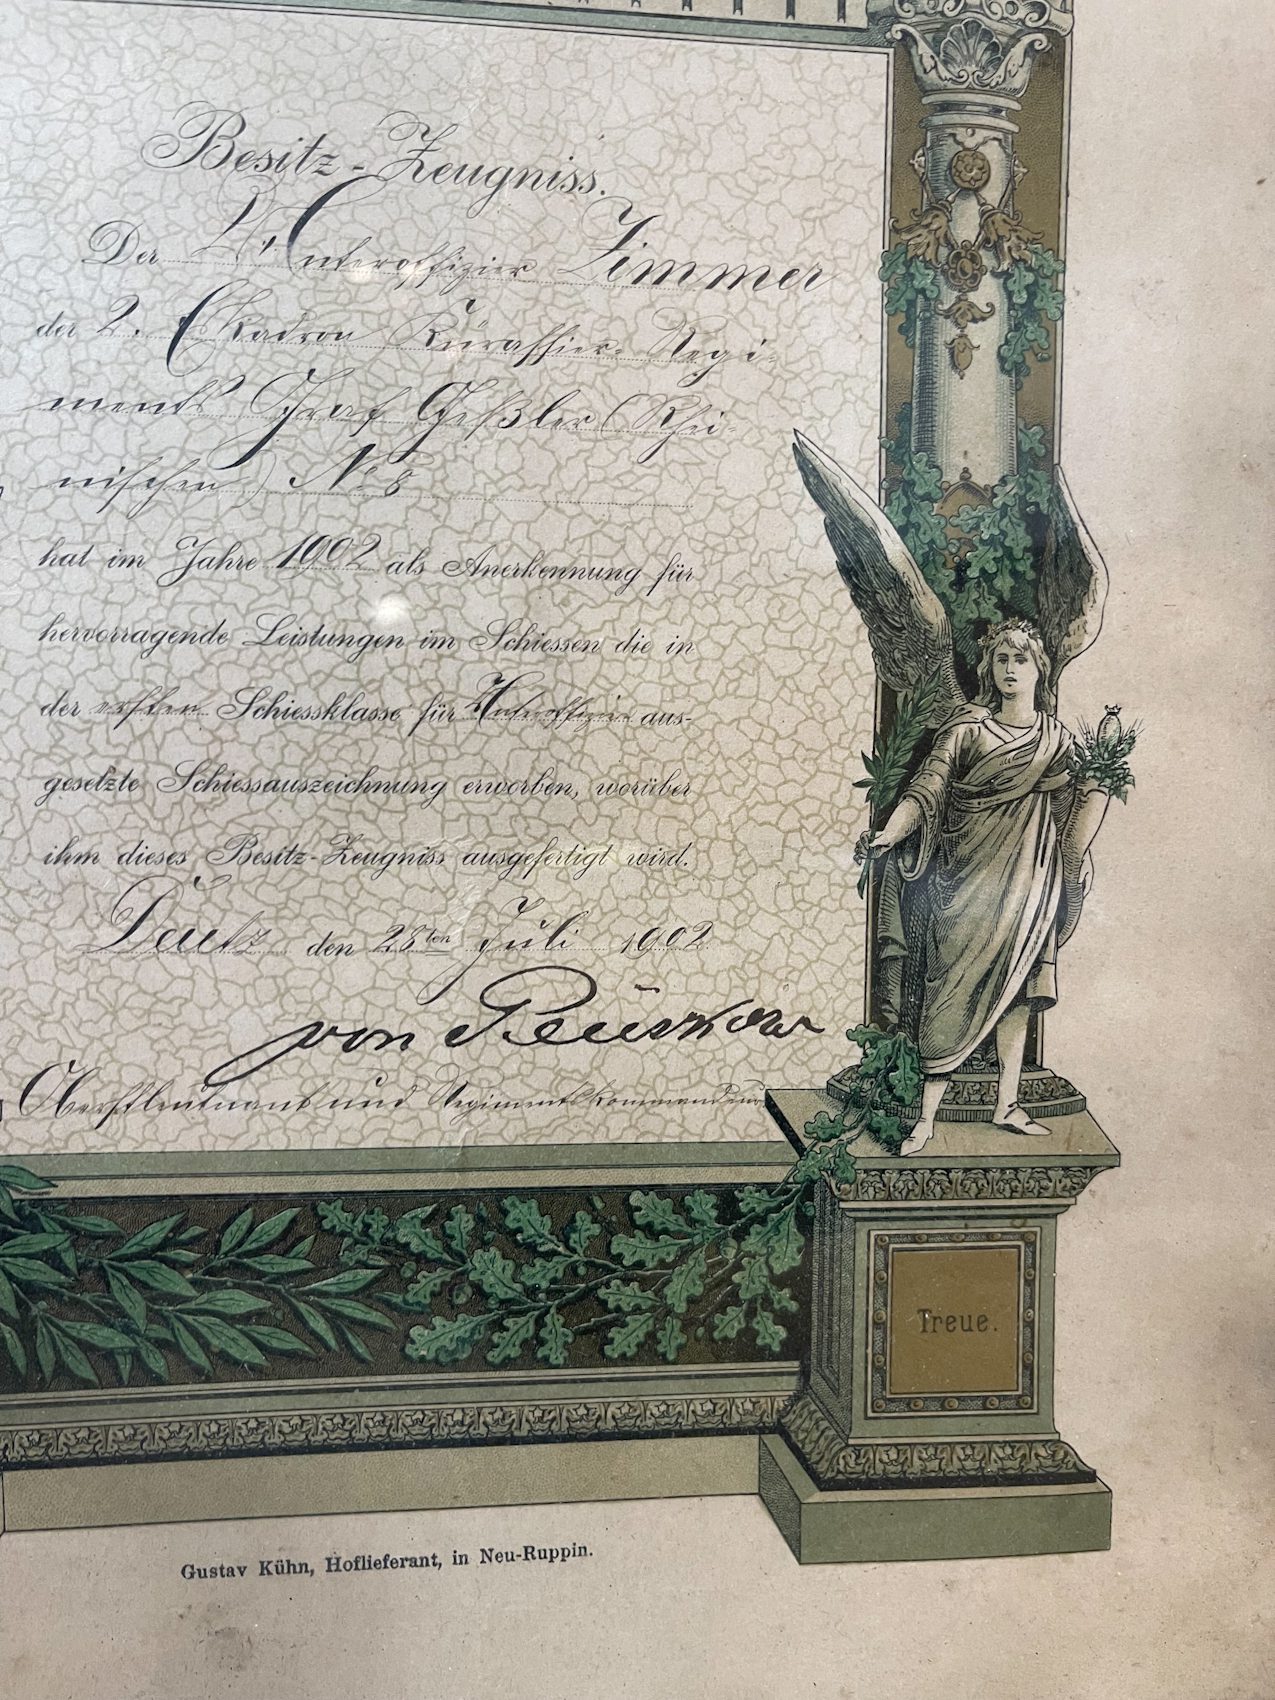 Besitz-Zeugniss.
Der Unteroffizier Zimmer
der 2. Eskadron Kürassier-Regi-
ments Graf Geßler (Rhei-
nischen) No 8
hat im Jahre 1902 als Anerkennung für
hervorragende Leistungen im Schiessen die in
der ersten Schiessklasse für Unteroffizier aus-
gesetzte Schiessauszeichnung erworben, worüber
ihm dieses Besitz-Zeugniss ausgefertigt wird.
Deutz den 28ten Juli 1902
von
Oberstleutnant und Regimentskommandeur
Treue.
Gustav Kühn, Hoflieferant, in Neu-Ruppin.